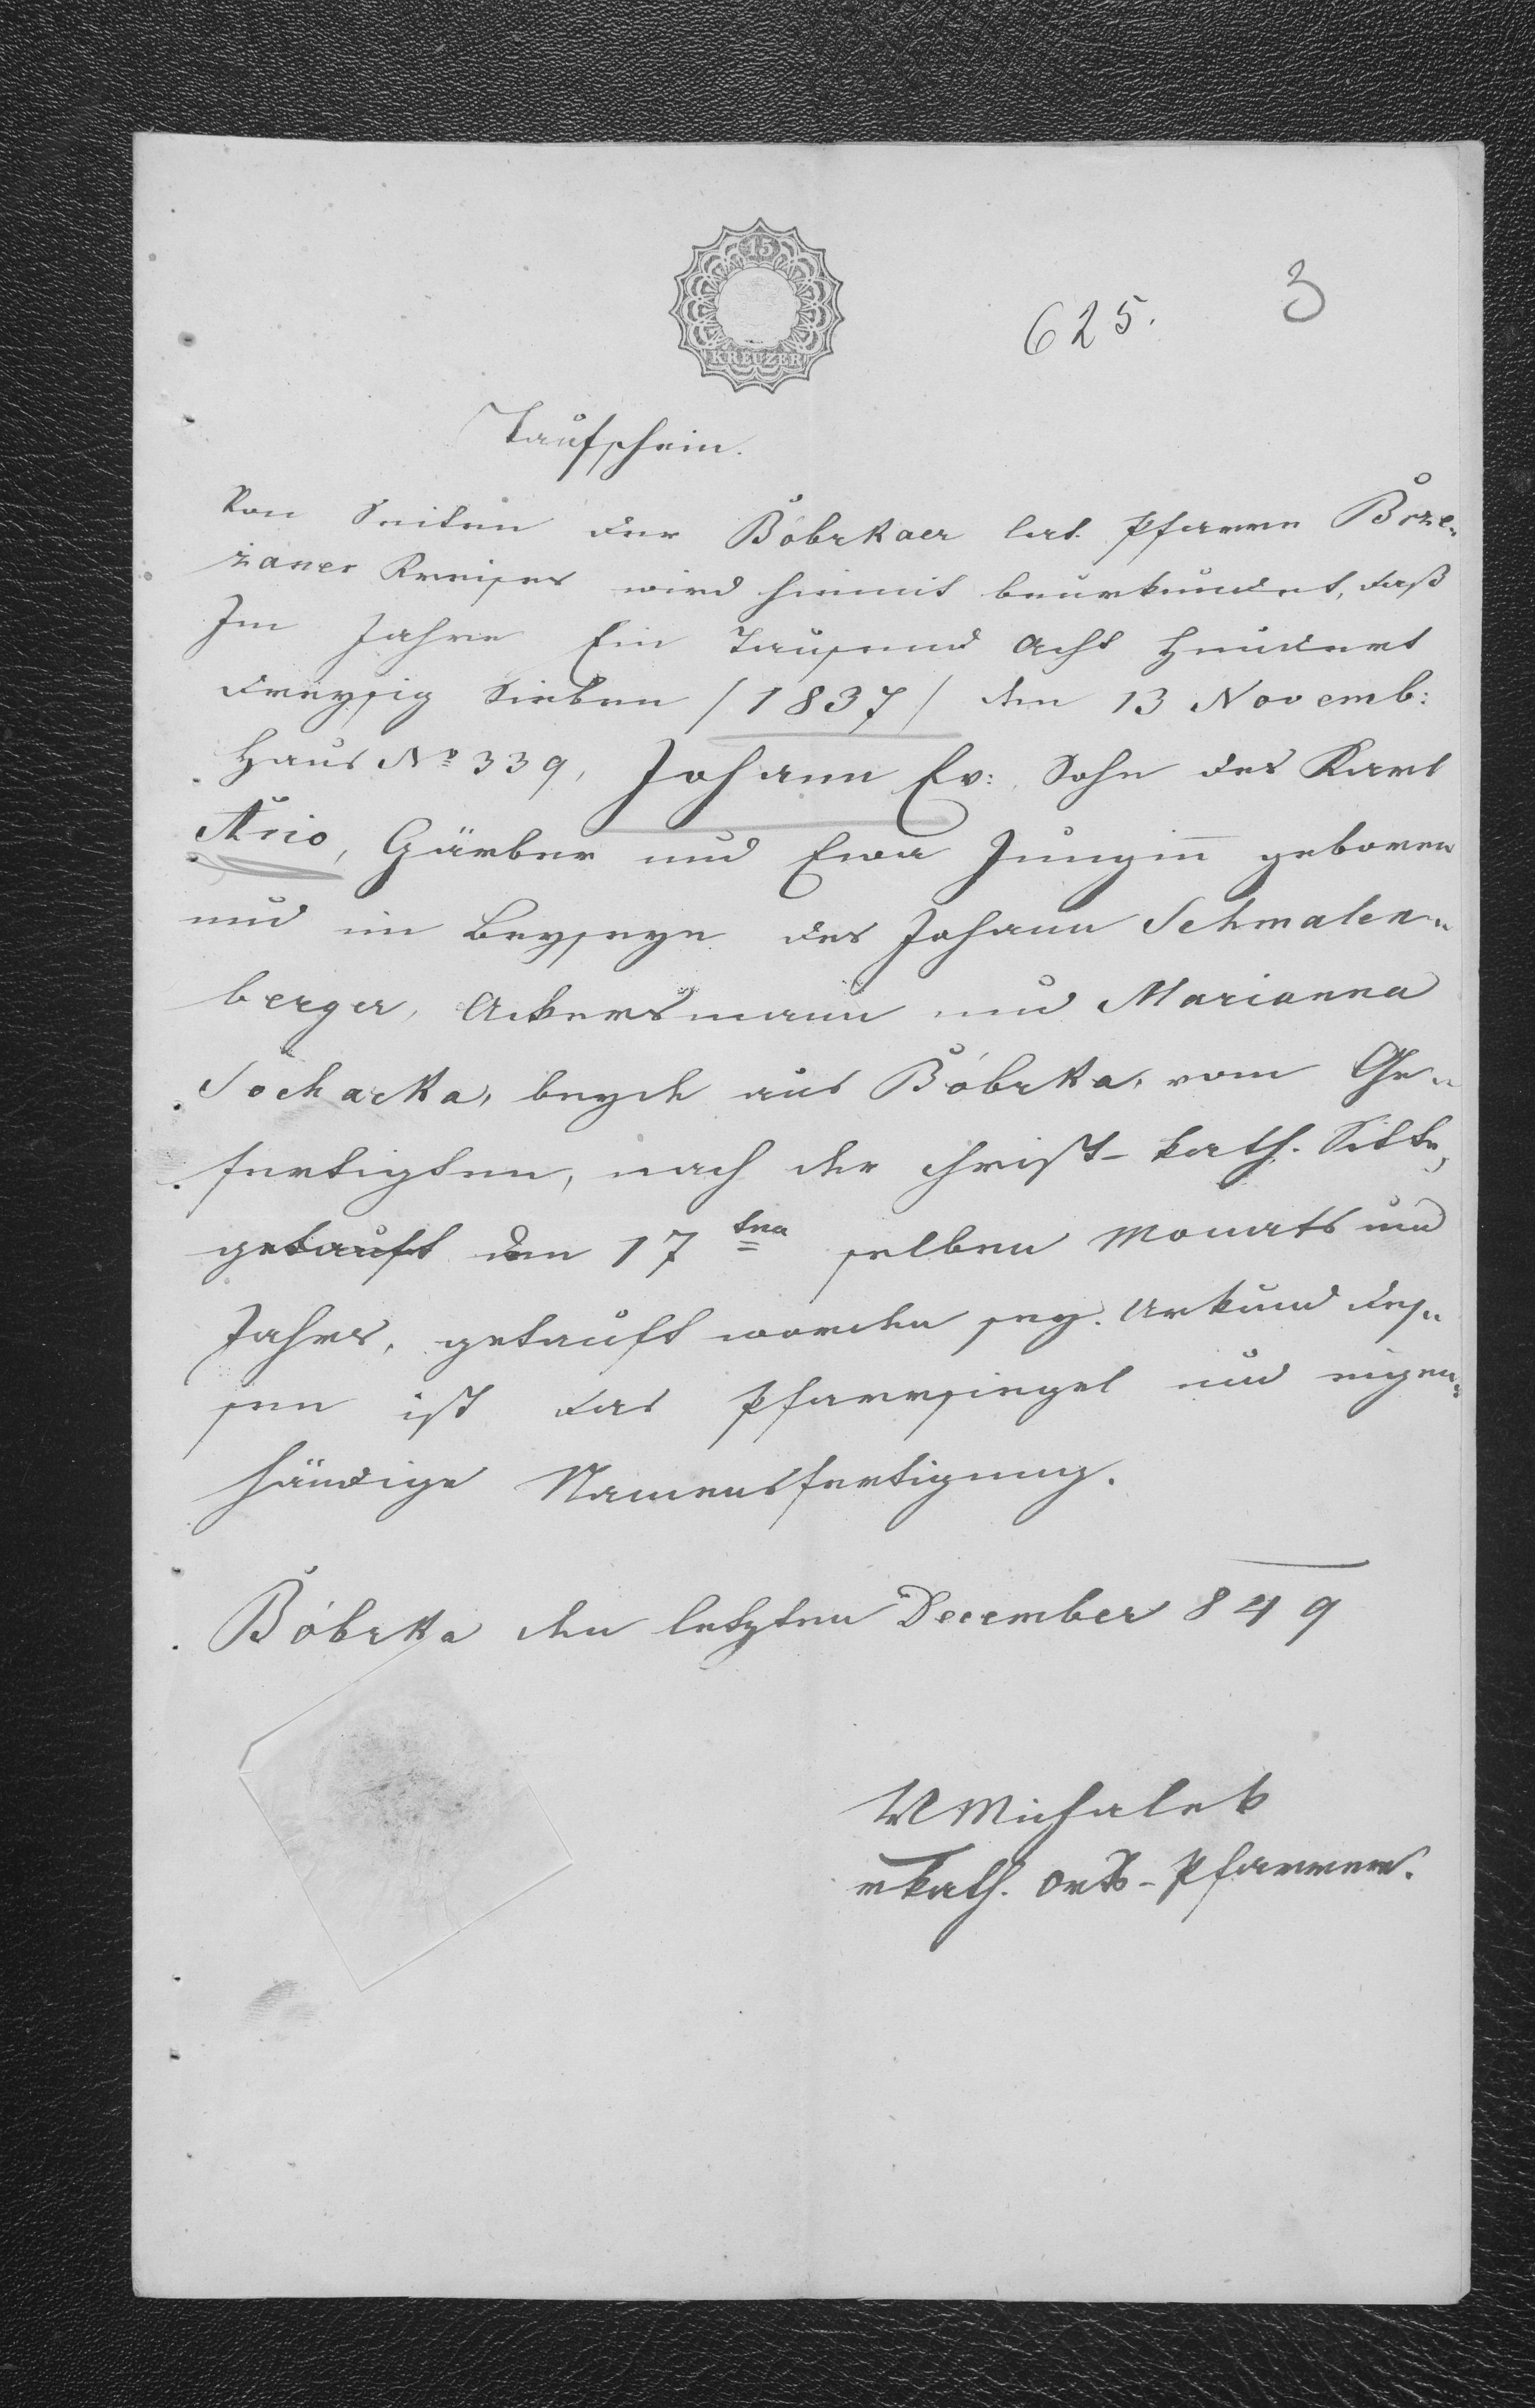 15
KREUZER
625.
3
Taufschein.
Von Seiten der Bóbrkaer lat. Pfarre Brze-
żaner Kreises wird hiemit beurkundet, daß
Im Jahre Ein Tausend Acht Hundert
dreysig Sieben /1837/ den 13 Novemb:
Haus No 339, Johann Ev: Sohn des Karl
Ario, Gärber und Ewa Junginn geboren
und im Beyseyn des Johann Schmalen-
berger, Ackersmann und Marianna
Socharka, beyde aus Bóbrka, vom Ge-
fertigten, nach der christ-kath. Sitte,
getauft den 17ten selben Monats und
Jahrs, getauft worden sey. Urkund des-
sen ist das Pfarrsiegel und eigen-
händige Namensfertigung.
Bóbrka den letzten December 849
Michalek
rkath. Orts-Pfarrer.